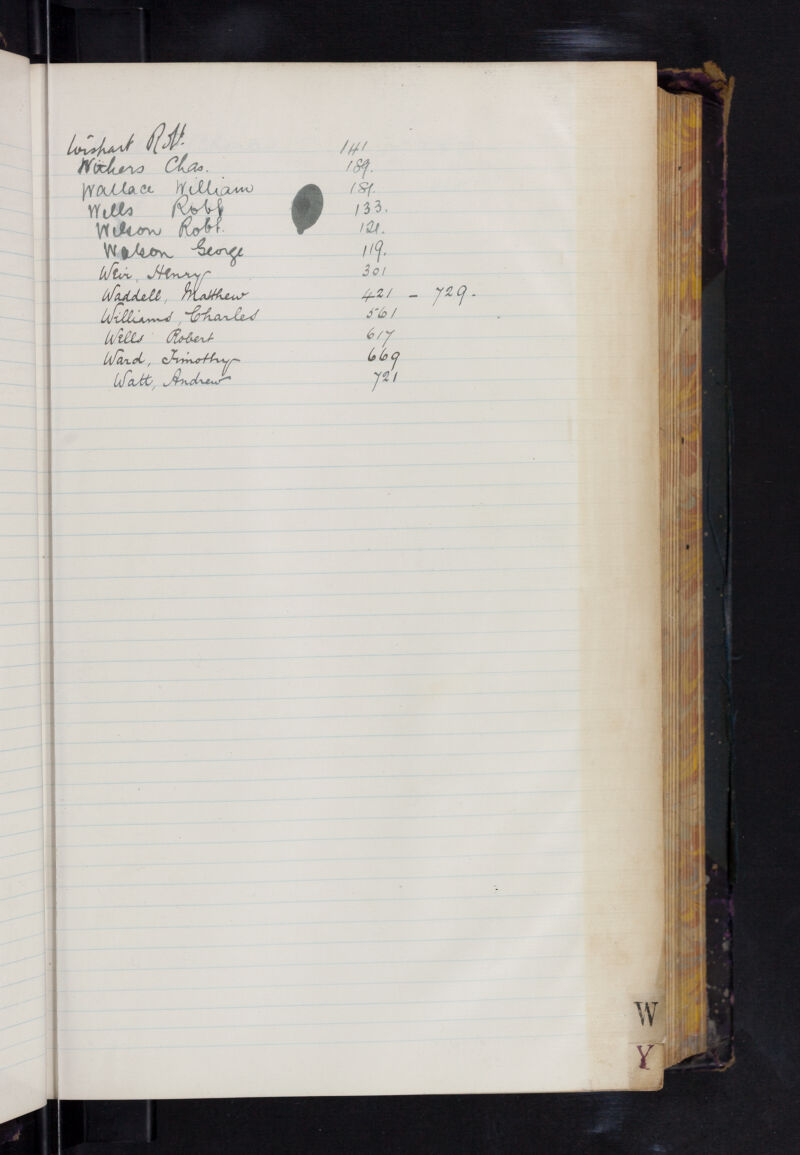 Wishart Robt. 141
Withers Chas. 189.
Wallace William 181.
Wells Robt 133.
Wilson Robt. 121.
Watson George 119.
Weir, Henry 301
Waddell, Matthew 421 - 729.
Williams, Charles 561
Wells Robert 617
Ward, Timothy 669
Watt, Andrew 721
W
Y